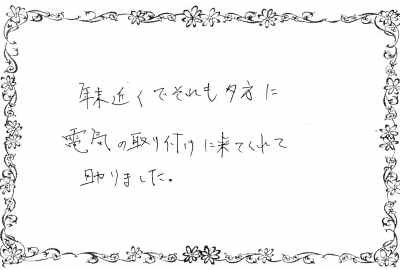 年末近くでそれも夕方に
電気の取り付けに来てくれて
助りました。